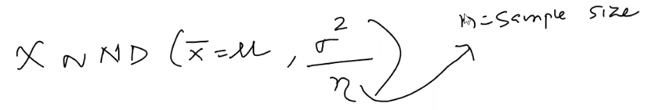 X ~ ND (x̄ = μ, σ²/n)
n = Sample size